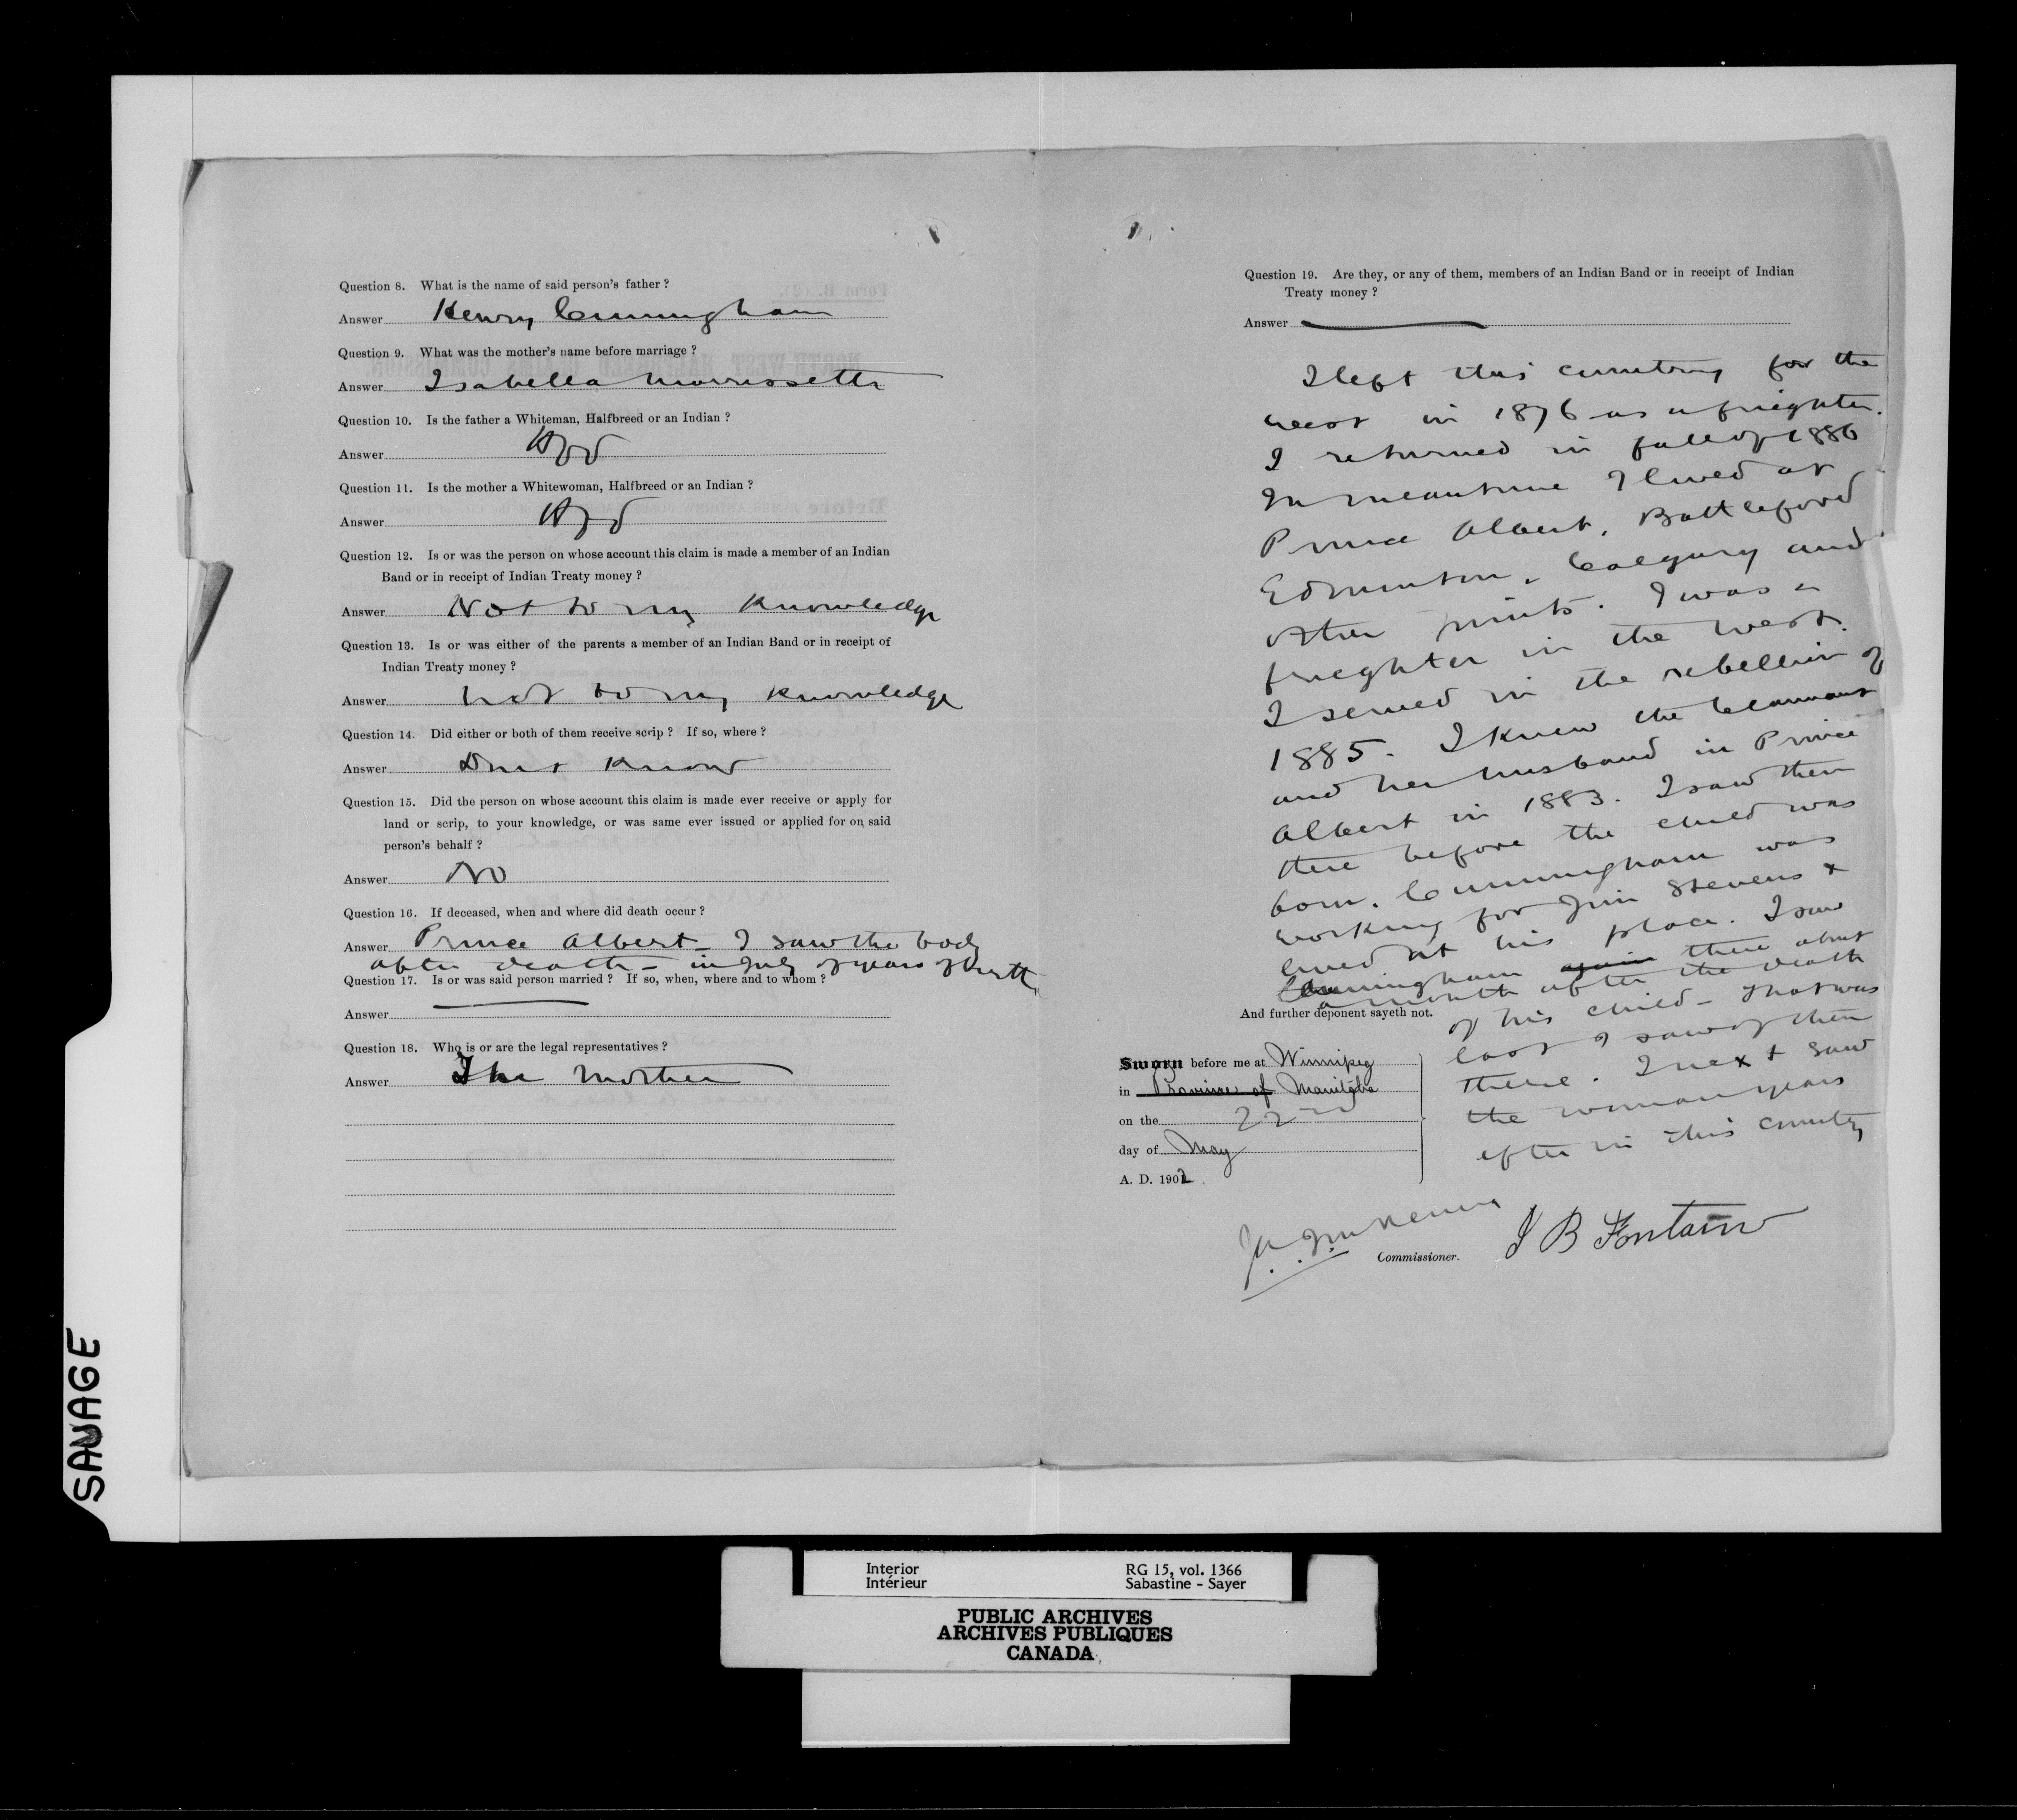 Question 8. What is the name of said person's father ?
Answer Henry Cunningham
Question 9. What was the mother's name before marriage ?
Answer Isabella Morrissette
Question 10. Is the father a Whiteman, Halfbreed or an Indian ?
Answer
Question 11. Is the mother a Whitewoman, Halfbreed or an Indian ?
Answer
Question 12. Is or was the person on whose account this claim is made a member of an Indian
Band or in receipt of Indian Treaty money ?
Answer Not to my knowledge
Question 13. Is or was either of the parents a member of an Indian Band or in receipt of
Indian Treaty money ?
Answer not to my knowledge
Question 14. Did either or both of them receive scrip ? If so, where ?
Answer Dont know
Question 15. Did the person on whose account this claim is made ever receive or apply for
land or scrip, to your knowledge, or was same ever issued or applied for on said
person's behalf ?
Answer No
Question 16. If deceased, when and where did death occur ?
Answer Prince Albert - I saw the body
after death - in July of year of birth
Question 17. Is or was said person married ? If so, when, where and to whom ?
Answer
Question 18. Who is or are the legal representatives ?
Answer The mother
Question 19. Are they, or any of them, members of an Indian Band or in receipt of Indian
Treaty money ?
Answer
I left this country for the
west in 1876 as a freighter.
I returned in fall of 1886
In meantime I lived at
Prince Albert, Battleford
Edmonton, Calgary and
other points. I was a
freighter in the west.
I served in the rebellion of
1885. I knew the claimant
and her husband in Prince
Albert in 1883. I saw them
there before the child was
born. Cunningham was
working for Jim Stevens &
lived at his place. I saw
Cunningham again there about
a month after the death
And further deponent sayeth not.
of his child - That was
last I saw of them
there. I next saw
the woman years
after in this country
Sworn before me at Winnipeg
in Province of Manitoba
on the 22nd
day of May
A. D. 1902
Commissioner.
J B Fontaine
SAVAGE
Interior RG 15, vol. 1366
Intérieur Sabastine - Sayer
PUBLIC ARCHIVES
ARCHIVES PUBLIQUES
CANADA